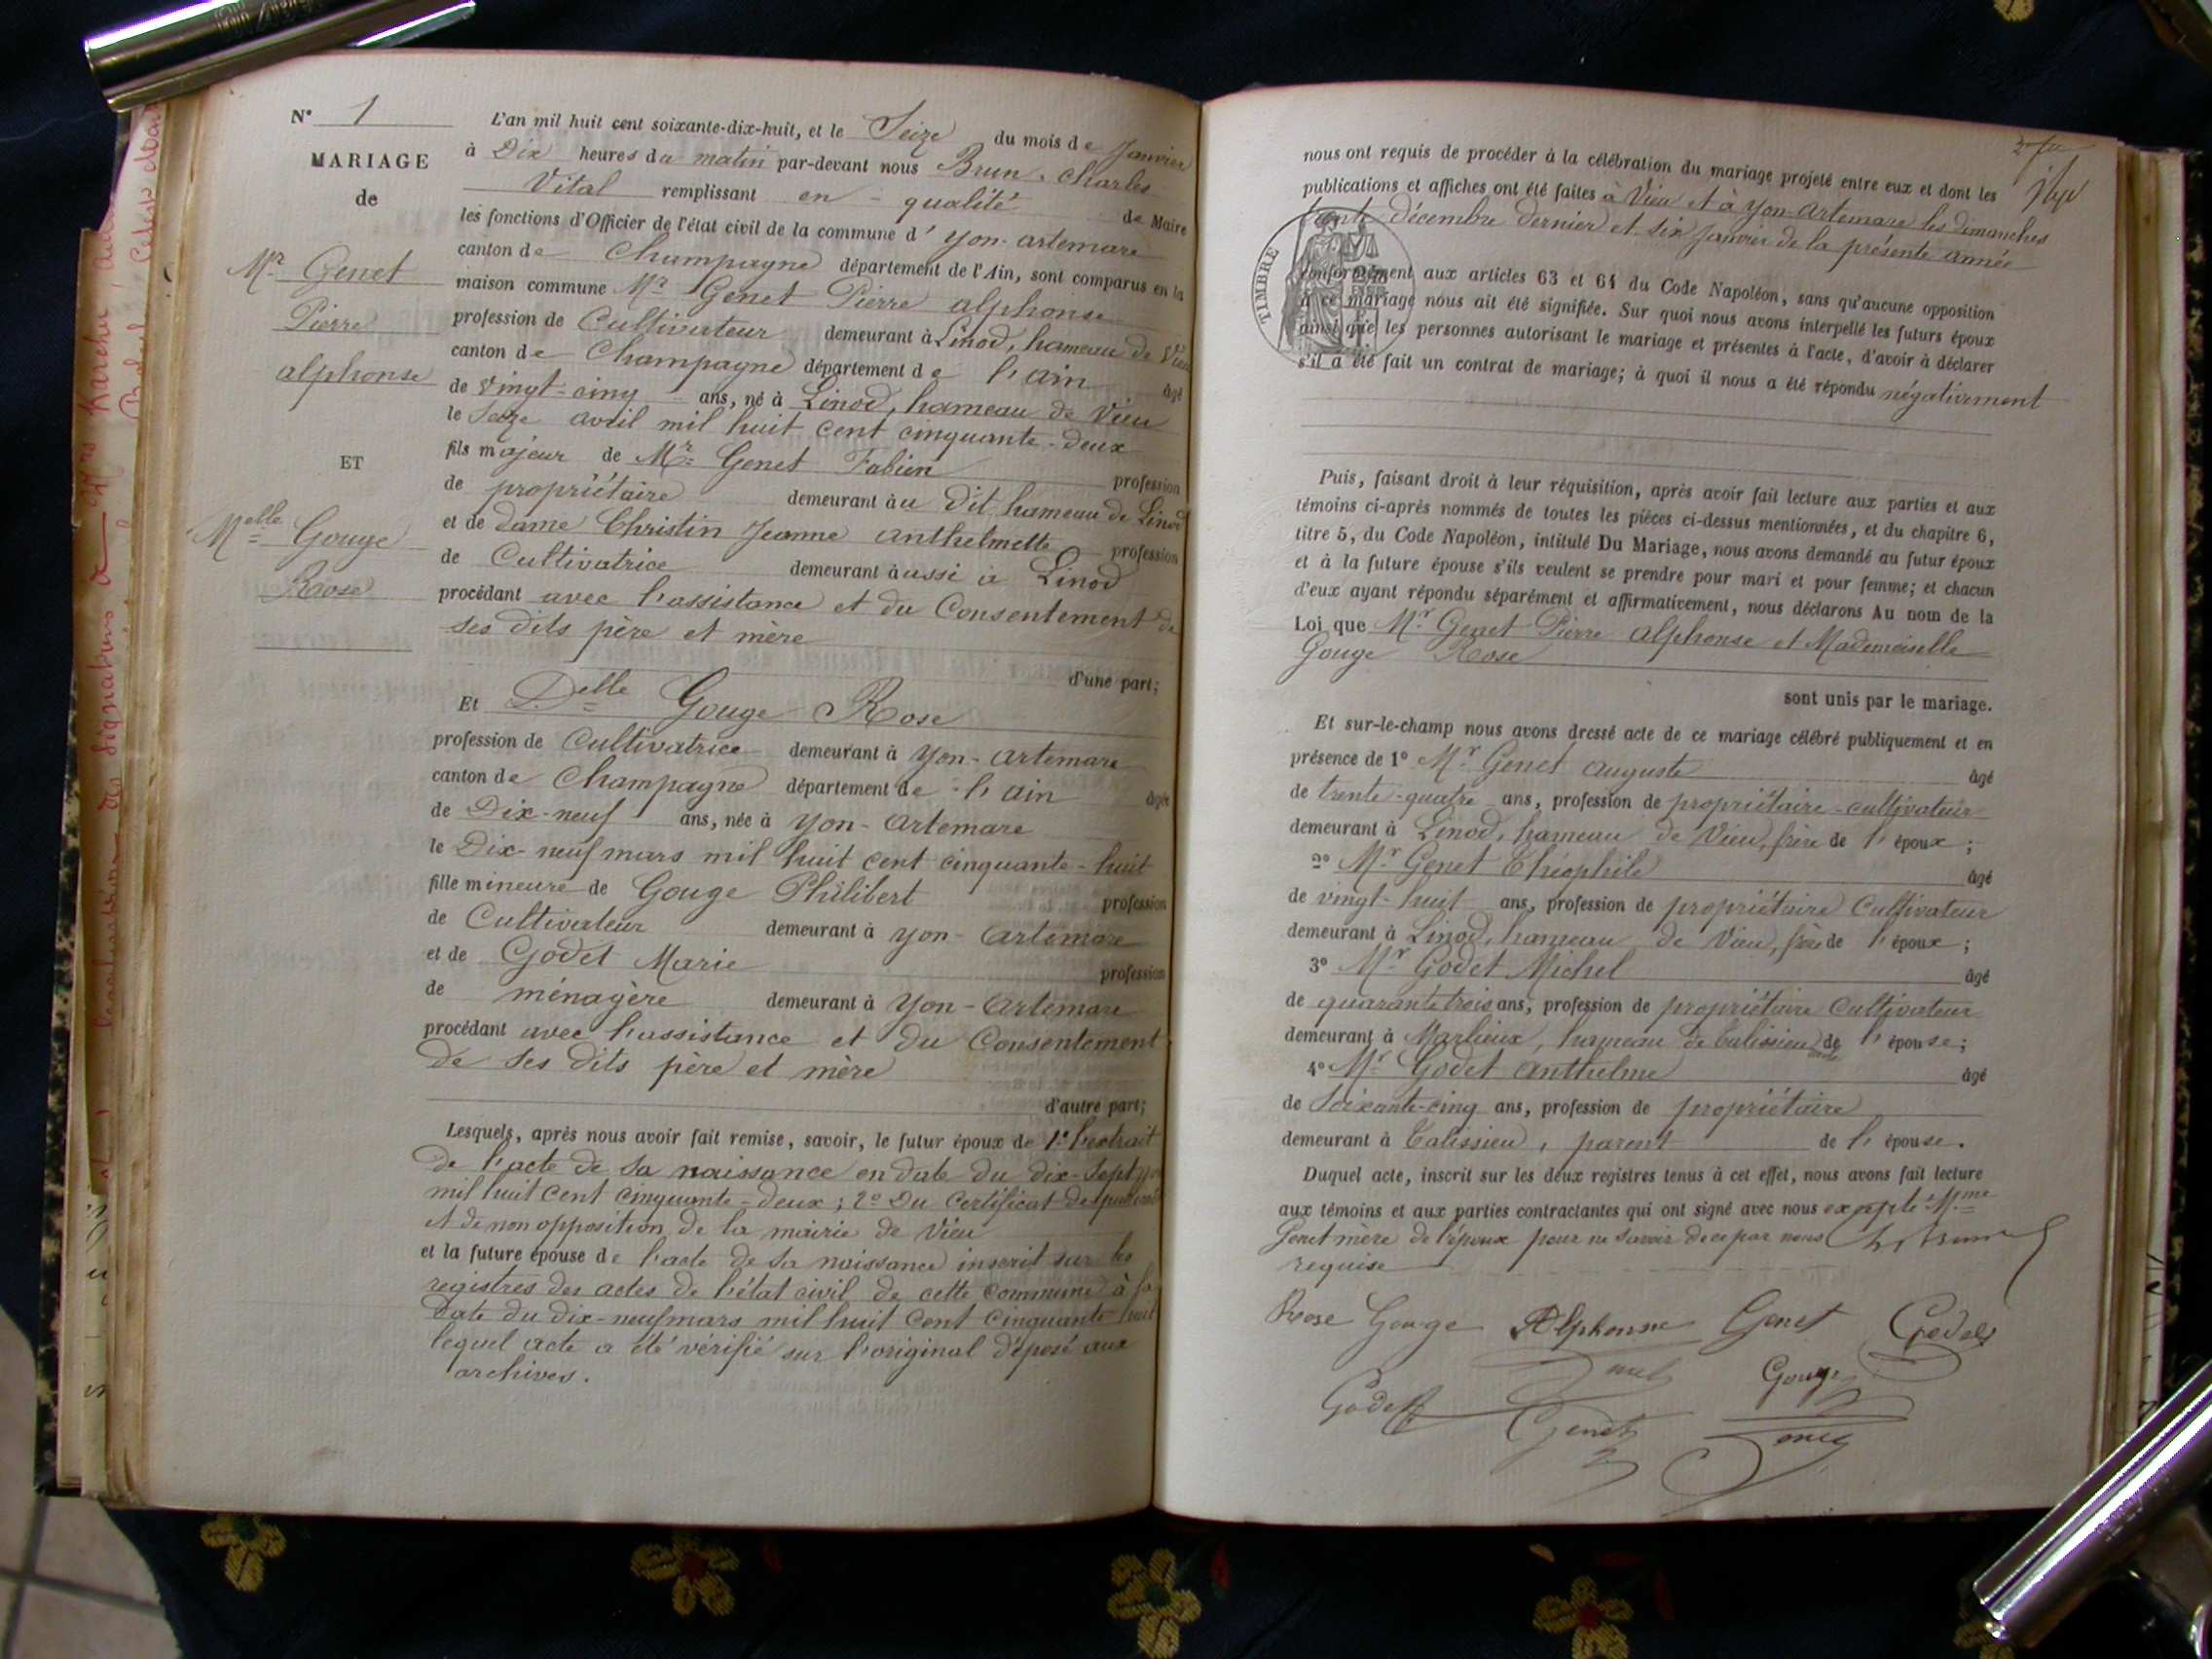 N° 1
MARIAGE
de
Mr Genet
Pierre
alphonse
ET
Melle Gouge
Rose
L'an mil huit cent soixante-dix-huit, et le Seize du mois de Janvier
à Dix heures du matin par-devant nous Brun, Charles
Vital remplissant en qualité de Maire
les fonctions d'Officier de l'état civil de la commune d'yon-artemare
canton de Champagne département de l'Ain, sont comparus en la
maison commune Mr Genet Pierre alphonse
profession de Cultivateur demeurant à Linod, hameau de Vieu
canton de Champagne département de l'ain âgé
de vingt-cinq ans, né à Linod, hameau de Vieu
le Seize avril mil huit cent cinquante-deux
fils majeur de Mr Genet Fabien profession
de propriétaire demeurant au dit hameau de Linod
et de dame Christin Jeanne anthelmette profession
de Cultivatrice demeurant aussi à Linod
procédant avec l'assistance et du Consentement de
ses dits père et mère
d'une part;
Et Delle Gouge Rose
profession de Cultivatrice demeurant à yon-artemare
canton de Champagne département de l'ain âgée
de Dix-neuf ans, née à yon-artemare
le Dix-neuf mars mil huit cent cinquante-huit
fille mineure de Gouge Philibert profession
de Cultivateur demeurant à yon-artemare
et de Godet Marie profession
de ménagère demeurant à yon-artemare
procédant avec l'assistance et du Consentement
de ses dits père et mère
d'autre part;
Lesquels, après nous avoir fait remise, savoir, le futur époux de 1° l'extrait
de l'acte de sa naissance en date du dix-sept
mil huit cent cinquante-deux; 2° Du Certificat de
et de non opposition de la mairie de Vieu
et la future épouse de l'acte de sa naissance inscrit sur les
registres des actes de l'état civil de cette commune à la
date du dix-neuf mars mil huit cent cinquante huit
lequel acte a été vérifié sur l'original déposé aux
archives.
nous ont requis de procéder à la célébration du mariage projeté entre eux et dont les
publications et affiches ont été faites à Vieu et à yon-artemare les dimanches
trente décembre dernier et six janvier de la présente année
TIMBRE
conformément aux articles 63 et 64 du Code Napoléon, sans qu'aucune opposition
à ce mariage nous ait été signifiée. Sur quoi nous avons interpellé les futurs époux
ainsi que les personnes autorisant le mariage et présentes à l'acte, d'avoir à déclarer
s'il a été fait un contrat de mariage; à quoi il nous a été répondu négativement
Puis, faisant droit à leur réquisition, après avoir fait lecture aux parties et aux
témoins ci-après nommés de toutes les pièces ci-dessus mentionnées, et du chapitre 6,
titre 5, du Code Napoléon, intitulé Du Mariage, nous avons demandé au futur époux
et à la future épouse s'ils veulent se prendre pour mari et pour femme; et chacun
d'eux ayant répondu séparément et affirmativement, nous déclarons Au nom de la
Loi que Mr Genet Pierre alphonse et Mademoiselle
Gouge Rose
sont unis par le mariage.
Et sur-le-champ nous avons dressé acte de ce mariage célébré publiquement et en
présence de 1° Mr Genet auguste âgé
de trente-quatre ans, profession de propriétaire-cultivateur
demeurant à Linod, hameau de Vieu, frère de l'époux;
2° Mr Genet Théophile âgé
de vingt-huit ans, profession de propriétaire Cultivateur
demeurant à Linod, hameau de Vieu, frère de l'époux;
3° Mr Godet Michel âgé
de quarante trois ans, profession de propriétaire Cultivateur
demeurant à Marlieux, hameau de Talissieu de l'épouse;
4° Mr Godet anthelme âgé
de Soixante-cinq ans, profession de propriétaire
demeurant à Talissieu, parent de l'épouse.
Duquel acte, inscrit sur les deux registres tenus à cet effet, nous avons fait lecture
aux témoins et aux parties contractantes qui ont signé avec nous excepté Mme
Genet mère de l'époux pour ne savoir de ce par nous
requise
Rose Gouge Alphonse Genet Godet
Godet Genet Gouge